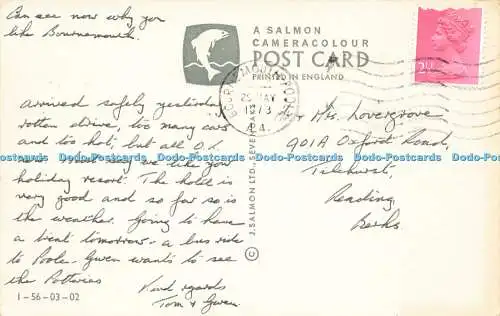 Can see now why you
like Bournemouth.
A SALMON
CAMERACOLOUR
POST CARD
PRINTED IN ENGLAND
BOURNEMOUTH-POOLE
29 MAY
1973
A
2½
arrived safely yesterday
rotten drive, too many cars
and too hot, but all O.K.
now. Must say we like your
holiday resort. The hotel is
very good and so far so is
the weather. Going to have
a treat tomorrow - a bus ride
to Poole. Gwen wants to see
the Potteries
Kind regards
Tom & Gwen.
Mrs. Lovergrove
901A Oxford Road,
Tilehurst,
Reading
Berks
© J. SALMON LTD., SEVENOAKS
1-56-03-02
Dodo-Postcards Dodo-Postcards Dodo-Postcards Dodo-Postcards Dodo-Postcards Dodo-Postcards